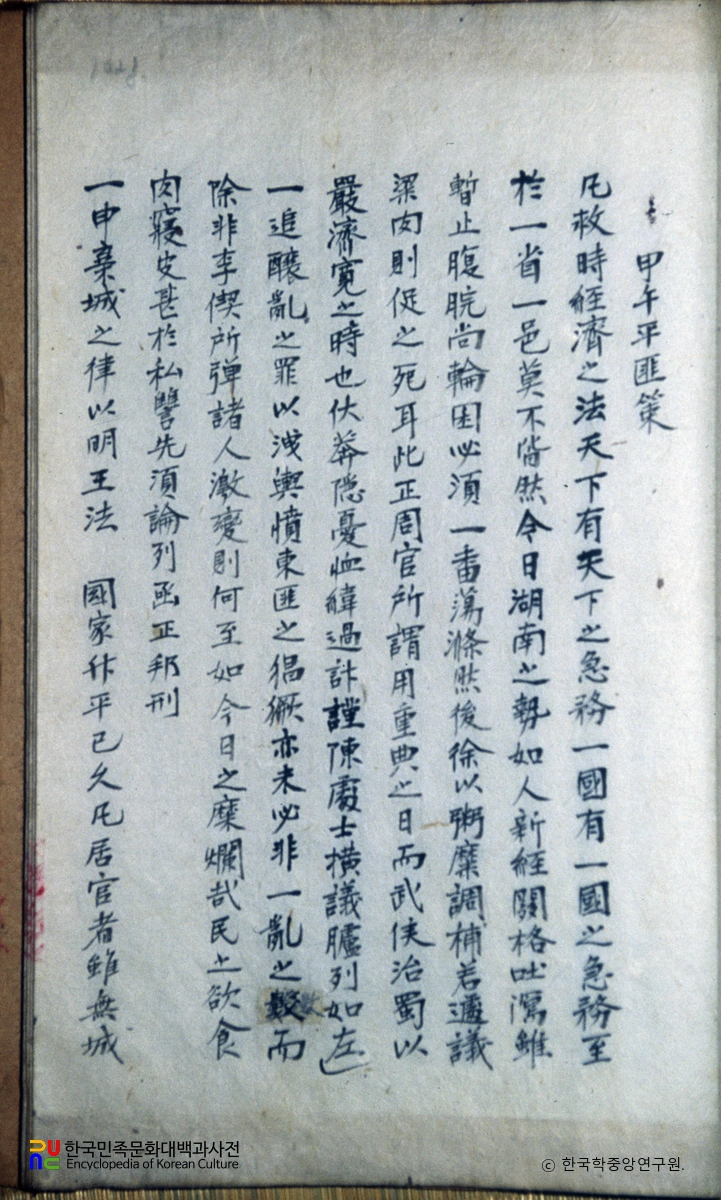 甲午平匪策
凡救時經濟之法天下有天下之急務一國有一國之急務至
於一省一邑莫不皆然今日湖南之勢如人新經關格吐瀉雖
暫止腹脘尚輪囷必須一番蕩滌然後徐以粥糜調補若遽議
粱肉則促之死耳此正周官所謂用重典之日而武侯治蜀以
嚴濟寬之時也伏莽隱憂恤緯過計謹陳處士橫議臚列如左
一追釀亂之罪以洩輿憤東匪之猖獗亦未必非一亂之數而
除非李偰所彈諸人激變則何至如今日之糜爛哉民之欲食
肉寢皮甚於私讐先須論列亟正邦刑
一申棄城之律以明王法 國家升平已久凡居官者雖無城
한국민족문화대백과사전
Encyclopedia of Korean Culture
ⓒ 한국학중앙연구원.